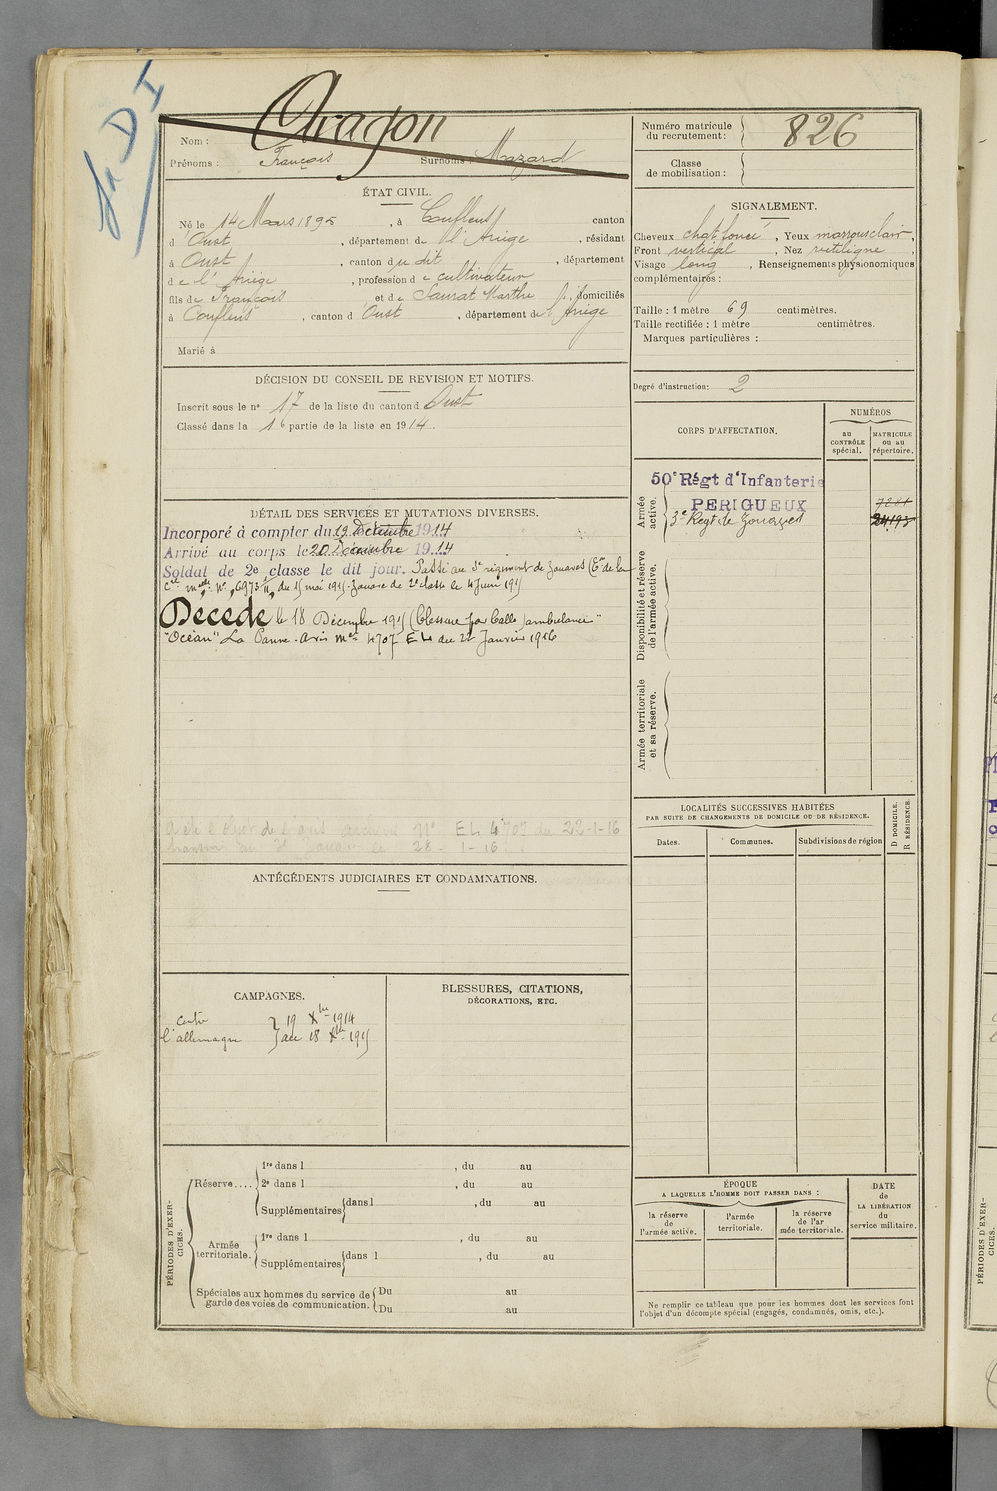 Nom : Aragon
Prénoms : François Surnoms : Mazard
Numéro matricule
du recrutement : 826
Classe
de mobilisation :
ÉTAT CIVIL.
Né le 14 Mars 1895, à Couflens canton
d'Oust, département de l'Ariège, résidant
à Oust, canton du dit, département
de l'Ariège, profession de cultivateur
fils de François et de Saurat Marthe, domiciliés
à Couflens, canton d'Oust, département de l'Ariège
Marié à
SIGNALEMENT.
Cheveux chat. foncé, Yeux marrons clair,
Front vertical, Nez rectiligne,
Visage long, Renseignements physionomiques
complémentaires :
Taille : 1 mètre 69 centimètres.
Taille rectifiée : 1 mètre centimètres.
Marques particulières :
Degré d'instruction : 2
DÉCISION DU CONSEIL DE REVISION ET MOTIFS.
Inscrit sous le n° 17 de la liste du canton d Oust
Classé dans la 1e partie de la liste en 1914.
CORPS D'AFFECTATION.
NUMÉROS
au
CONTRÔLE
spécial.
MATRICULE
ou au
répertoire.
Armée
active.
50e Régt d'Infanterie
PERIGUEUX
3e Regt de Zouaves
7281
24193
Disponibilité et réserve
de l'armée active.
Armée territoriale
et sa réserve.
DÉTAIL DES SERVICES ET MUTATIONS DIVERSES.
Incorporé à compter du 19 Décembre 1914
Arrivé au corps le 20 Décembre 1914
Soldat de 2e classe le dit jour. Passé au 3e régiment de zouaves
du 15 mai 1915. Zouave de 2e classe le 4 Juin 1915
Décédé le 18 Décembre 1915 (blessure par balle) ambulance
"Océan" La Panne. avis mel 4707 EL du 22 Janvier 1916
EL 4707 du 22-1-16
28-1-16
LOCALITÉS SUCCESSIVES HABITÉES
PAR SUITE DE CHANGEMENTS DE DOMICILE OU DE RÉSIDENCE.
Dates.
Communes.
Subdivisions de région
D DOMICILE.
R RÉSIDENCE.
ANTÉCÉDENTS JUDICIAIRES ET CONDAMNATIONS.
CAMPAGNES.
contre 19 Xbre 1914
l'allemagne au 18 Xbre 1915
BLESSURES, CITATIONS,
DÉCORATIONS, ETC.
PÉRIODES D'EXER-
CICES.
Réserve....
1re dans l , du au
2e dans l , du au
Supplémentaires dans l , du au
Armée
territoriale.
1re dans l , du au
Supplémentaires dans l , du au
Spéciales aux hommes du service de
garde des voies de communication.
Du au
Du au
ÉPOQUE
A LAQUELLE L'HOMME DOIT PASSER DANS :
la réserve
de
l'armée active.
l'armée
territoriale.
la réserve
de l'ar
mée territoriale.
DATE
de
LA LIBÉRATION
du
service militaire.
Ne remplir ce tableau que pour les hommes dont les services font
l'objet d'un décompte spécial (engagés, condamnés, omis, etc.).
PÉRIODES D'EXER-
CICES.